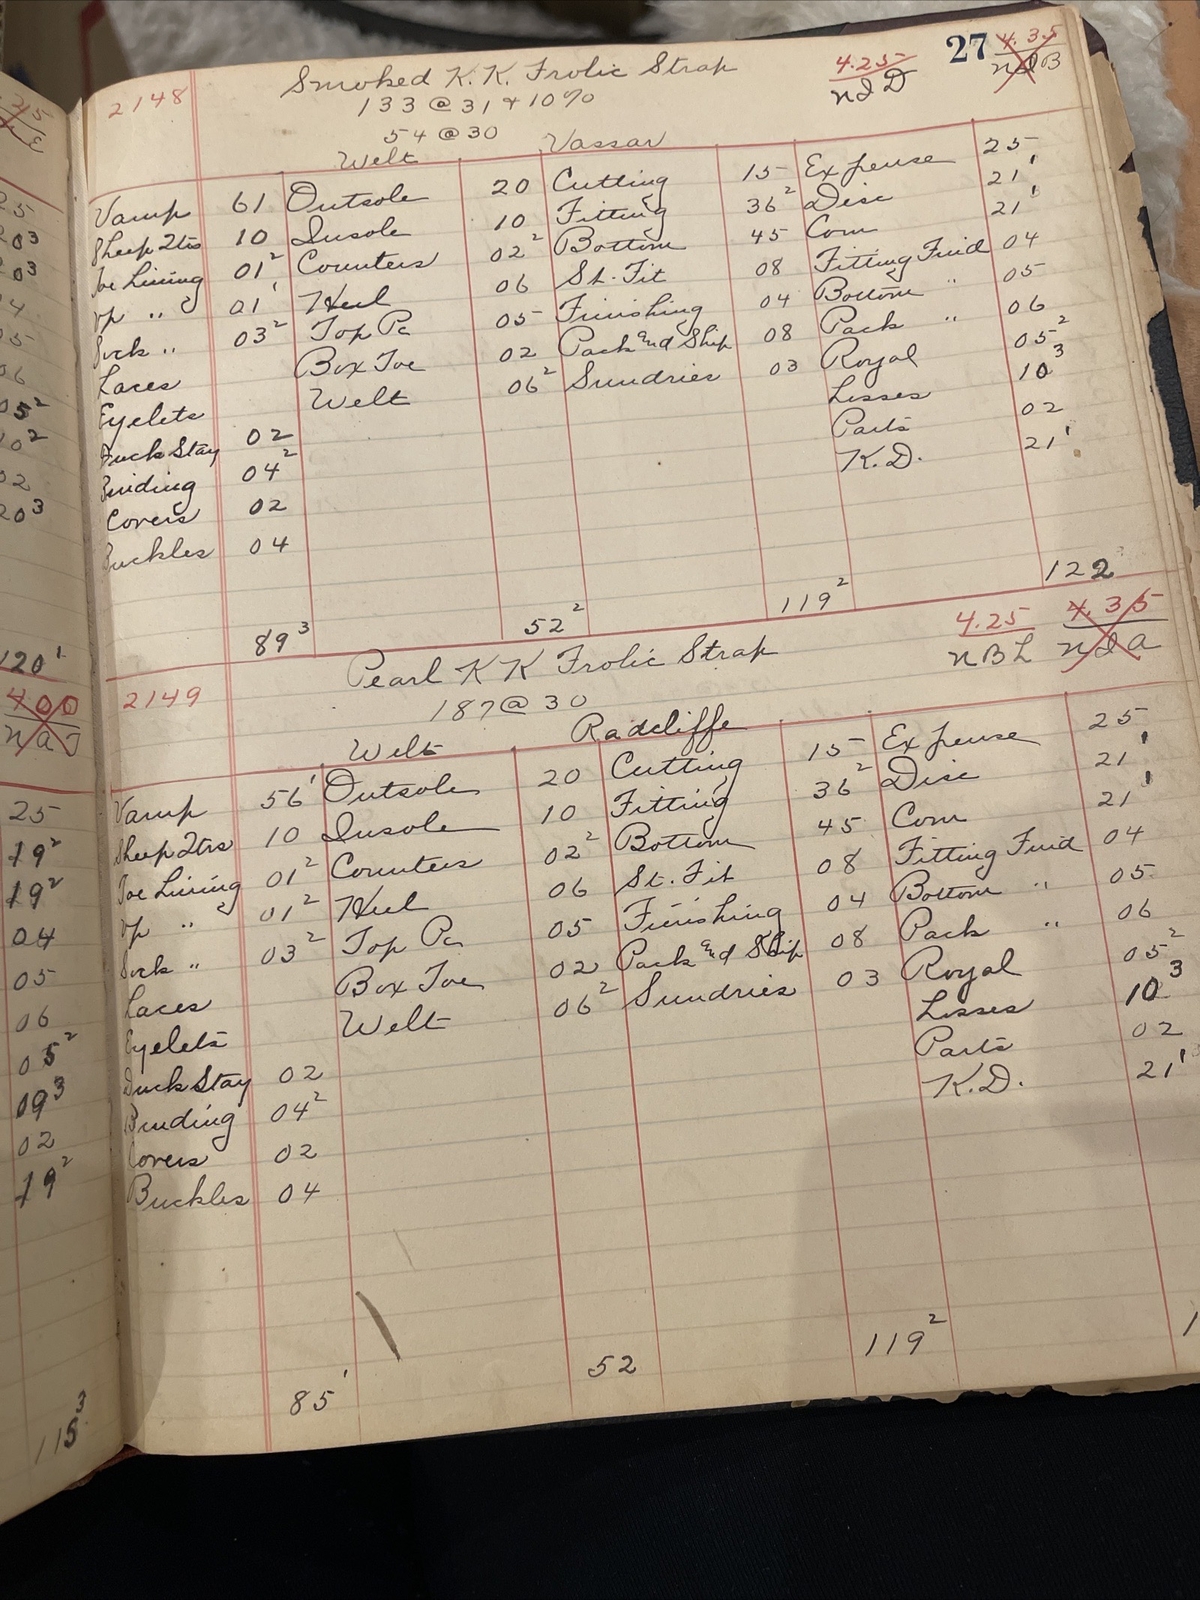 27
2148 Smoked K.K. Frolic Strap 4.25 4.35
133 @ 31 + 10% NJD NJB
54 @ 30
Welt Vassar
Vamp 61 Outsole 20 Cutting 15 Expense 25
Sheep 2trs 10 Insole 10 Fitting 36² Disc 21¹
Toe Lining 01² Counters 02² Bottom 45 Com 21¹
Vp " 01¹ Heel 06 St. Fit 08 Fitting Fuid 04
Sock " 03² Top Pc 05 Finishing 04 Bottom " 05
Laces Box Toe 02 Pack and Ship 08 Pack " 06
Eyelets Welt 06² Sundries 03 Royal 05²
Duck Stay 02 Losses 10³
Binding 04² Parts 02
Covers 02 K.D. 21¹
Buckles 04
89³ 52² 119² 122
2149 Pearl K K Frolic Strap 4.25 4.35
187 @ 30 NBL NJA
Welt Radcliffe
Vamp 56¹ Outsole 20 Cutting 15 Expense 25
Sheep 2trs 10 Insole 10 Fitting 36² Disc 21¹
Toe Lining 01² Counters 02² Bottom 45 Com 21¹
Vp " 01² Heel 06 St. Fit 08 Fitting Fuid 04
Sock " 03² Top Pc 05 Finishing 04 Bottom " 05
Laces Box Toe 02 Pack and Ship 08 Pack " 06
Eyelets Welt 06² Sundries 03 Royal 05²
Duck Stay 02 Losses 10³
Binding 04² Parts 02
Covers 02 K.D. 21¹
Buckles 04
85¹ 52 119² 1
25
20³
20³
05²
02
20³
120¹
4.00
NAJ
25
19²
19²
04
05
06
05²
09³
02
19²
115³